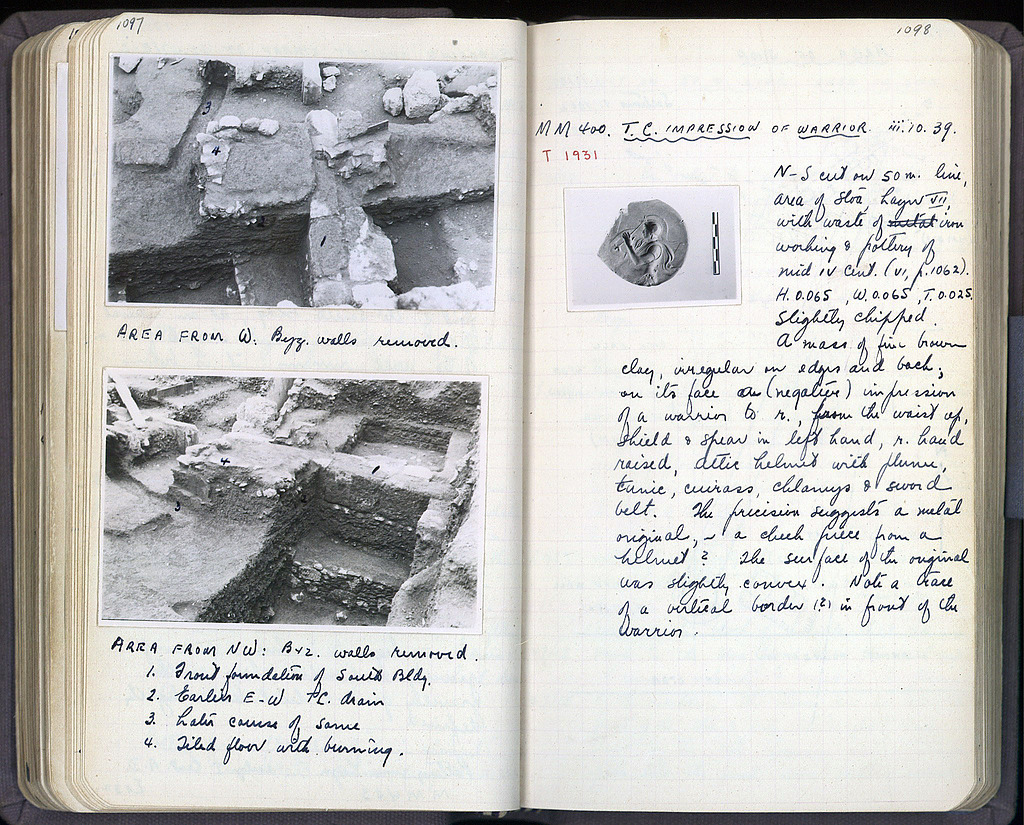 1097
3
4
1
AREA FROM W: Byz. walls removed.
4
1
3
2
AREA FROM NW: Byz. walls removed.
1. Front foundation of South Bldg.
2. Earlier E-W TC. drain
3. Later course of same
4. Tiled floor with burning.
1098
MM 400. T.C. IMPRESSION OF WARRIOR. iii.10.39.
T 1931
N-S cut on 50 m. line,
area of Stoa, Layer VII,
with waste of metal iron
working & pottery of
mid IV cent. (VI, p.1062).
H. 0.065, W. 0.065, T. 0.025.
Slightly chipped.
A mass of fine brown
clay, irregular on edges and back;
on its face (negative) impression
of a warrior to r., from the waist up,
shield & spear in left hand, r. hand
raised, attic helmet with plume,
tunic, cuirass, chlamys & sword
belt. The precision suggests a metal
original, a cheek piece from a
helmet? The surface of the original
was slightly convex. Note a trace
of a vertical border (?) in front of the
warrior.